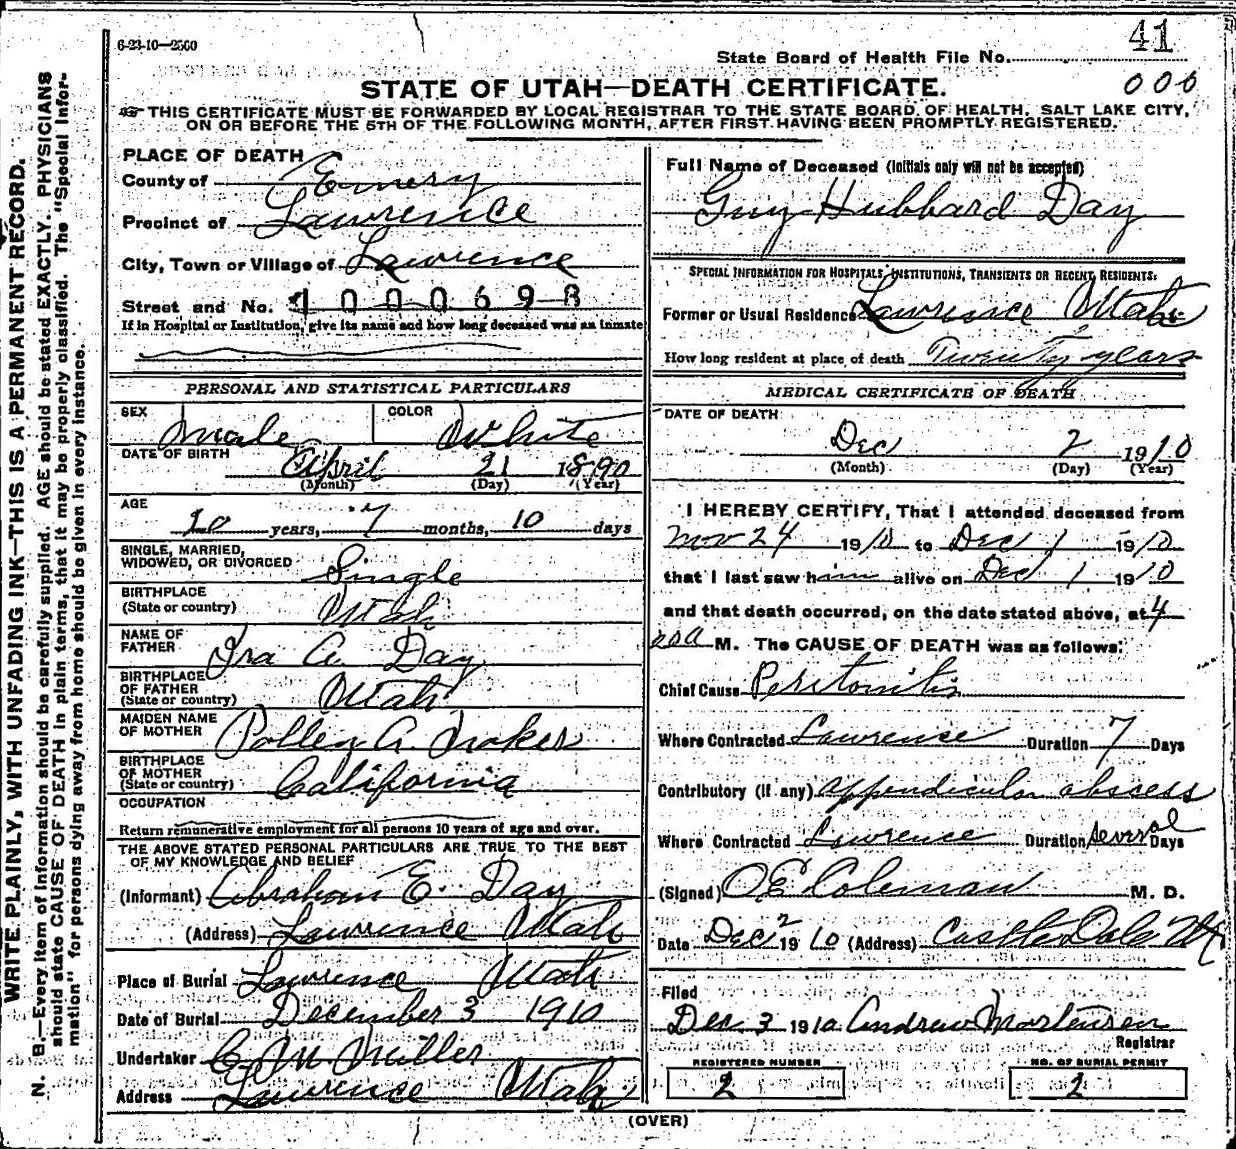 6-23-10—2500
41
State Board of Health File No.
000
STATE OF UTAH—DEATH CERTIFICATE.
THIS CERTIFICATE MUST BE FORWARDED BY LOCAL REGISTRAR TO THE STATE BOARD OF HEALTH, SALT LAKE CITY,
ON OR BEFORE THE 5TH OF THE FOLLOWING MONTH, AFTER FIRST HAVING BEEN PROMPTLY REGISTERED.
WRITE PLAINLY, WITH UNFADING INK—THIS IS A PERMANENT RECORD.
N. B.—Every item of information should be carefully supplied. AGE should be stated EXACTLY. PHYSICIANS
should state CAUSE OF DEATH in plain terms, that it may be properly classified. The "Special Infor-
mation" for persons dying away from home should be given in every instance.
PLACE OF DEATH
County of Emery
Precinct of Lawrence
City, Town or Village of Lawrence
Street and No. 1000698
If in Hospital or Institution, give its name and how long deceased was an inmate
PERSONAL AND STATISTICAL PARTICULARS
SEX Male COLOR White
DATE OF BIRTH April 21 1890
(Month) (Day) (Year)
AGE 20 years, 7 months, 10 days
SINGLE, MARRIED,
WIDOWED, OR DIVORCED Single
BIRTHPLACE
(State or country) Utah
NAME OF
FATHER Ira A. Day
BIRTHPLACE
OF FATHER
(State or country) Utah
MAIDEN NAME
OF MOTHER Polley A.
BIRTHPLACE
OF MOTHER
(State or country) California
OCCUPATION
Return remunerative employment for all persons 10 years of age and over.
THE ABOVE STATED PERSONAL PARTICULARS ARE TRUE TO THE BEST
OF MY KNOWLEDGE AND BELIEF
(Informant) Abraham E. Day
(Address) Lawrence Utah
Place of Burial Lawrence Utah
Date of Burial December 3 1910
Undertaker C. M. Miller
Address Lawrence Utah
Full Name of Deceased (Initials only will not be accepted)
Guy Hubbard Day
SPECIAL INFORMATION FOR HOSPITALS, INSTITUTIONS, TRANSIENTS OR RECENT RESIDENTS:
Former or Usual Residence Lawrence Utah
How long resident at place of death Twenty years
MEDICAL CERTIFICATE OF DEATH
DATE OF DEATH
Dec 2 1910
(Month) (Day) (Year)
I HEREBY CERTIFY, That I attended deceased from
Nov 24 1910 to Dec 1 1910
that I last saw him alive on Dec 1 1910
and that death occurred, on the date stated above, at 4
M. The CAUSE OF DEATH was as follows:
Chief Cause Peritonitis
Where Contracted Lawrence Duration 7 Days
Contributory (if any) appendicular abscess
Where Contracted Lawrence Duration several Days
(Signed) O E Coleman M. D.
Date Dec 2 1910 (Address) Castle Dale Ut
Filed
Dec 3 1910 Andrew Mortensen
Registrar
REGISTERED NUMBER NO. OF BURIAL PERMIT
2 2
(OVER)